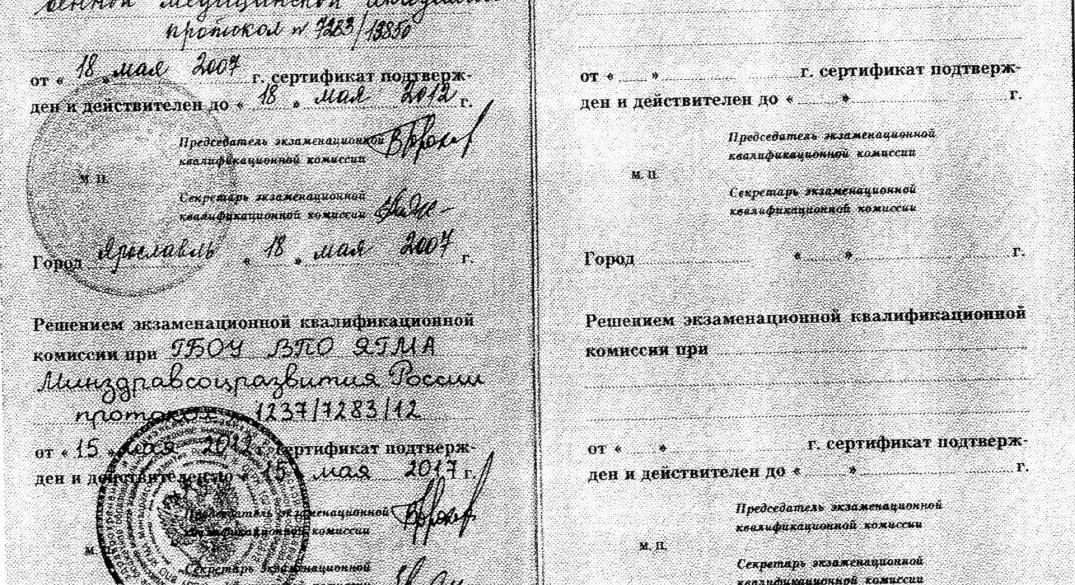 венной медицинской академии
протокол № 7283/13850
от « 18 » мая 2007 г. сертификат подтверж-
ден и действителен до « 18 » мая 2012 г.
Председатель экзаменационной
квалификационной комиссии
М. П.
Секретарь экзаменационной
квалификационной комиссии
Город Ярославль « 18 » мая 2007 г.
Решением экзаменационной квалификационной
комиссии при ГБОУ ВПО ЯГМА
Минздравсоцразвития России
протокол 1237/7283/12
от « 15 » мая 2012 г. сертификат подтверж-
ден и действителен до « 15 » мая 2017 г.
Председатель экзаменационной
квалификационной комиссии
М.
Секретарь экзаменационной
комиссии
от « » г. сертификат подтверж-
ден и действителен до « » г.
Председатель экзаменационной
квалификационной комиссии
М. П.
Секретарь экзаменационной
квалификационной комиссии
Город « » г.
Решением экзаменационной квалификационной
комиссии при
от « » г. сертификат подтверж-
ден и действителен до « » г.
Председатель экзаменационной
квалификационной комиссии
М. П.
Секретарь экзаменационной
квалификационной комиссии